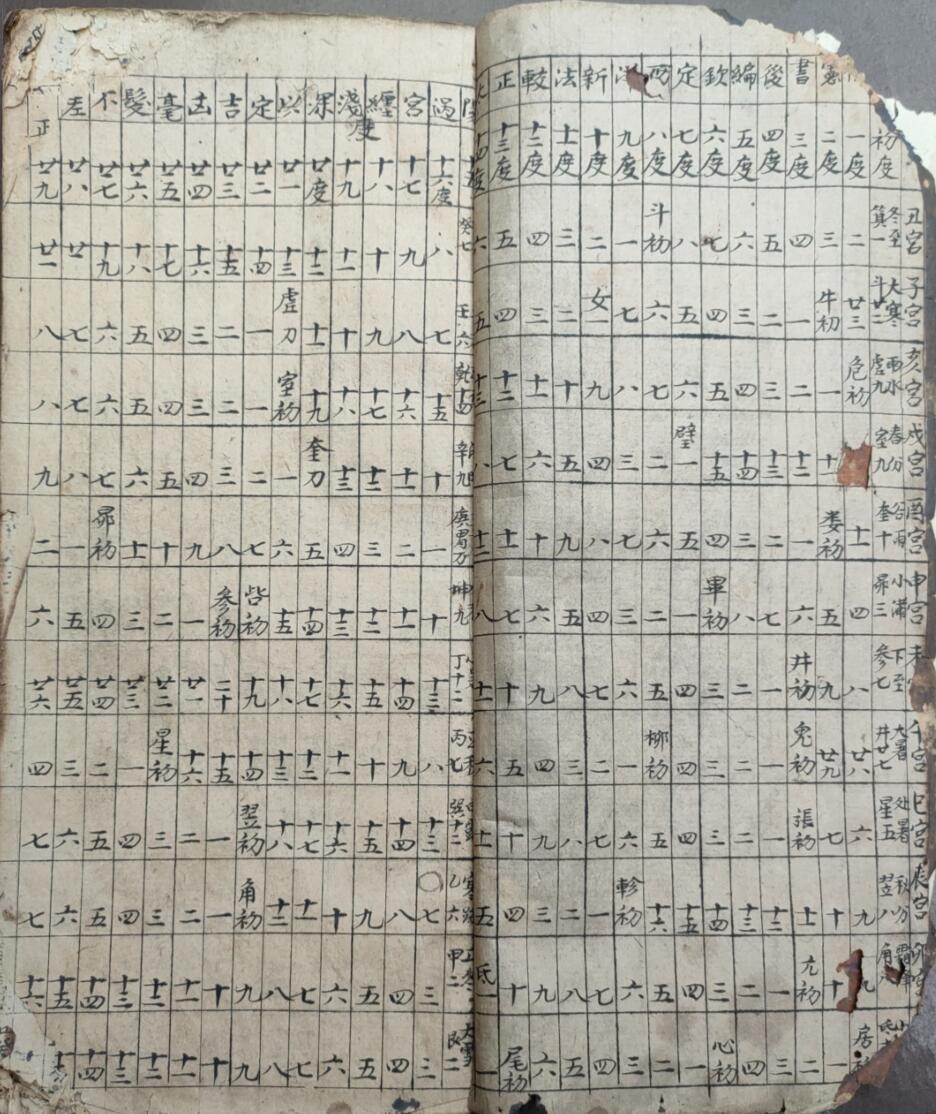 憲書後編欽定西 新法較正
過宮纏淺深以定吉凶毫髮不差
度
初度 一度 二度 三度 四度 五度 六度 七度 八度 九度 十度 十一度 十二度 十三度 十四度
十六度 十七 十八 十九 廿度 廿一 廿二 廿三 廿四 廿五 廿六 廿七 廿八 正廿九
丑宮 冬至箕一 二 三 四 五 六 七 八 斗初 一 二 三 四 五 六
癸七 八 九 十 十一 十二 十三 十四 十五 十六 十七 十八 十九 廿 廿一
子宮 大寒斗廿二 廿三 牛初 一 二 三 四 五 六 七 女一 二 三 四 五
壬六 七 八 九 十 十一 虛刀 一 二 三 四 五 六 七 八
亥宮 雨水虛九 危初 一 二 三 四 五 六 七 八 九 十 十一 十二 十三
乾十四 十五 十六 十七 十八 十九 室初 一 二 三 四 五 六 七 八
戌宮 春分室九 十 十二 十三 十四 十五 壁一 二 三 四 五 六 七 八
辛九 十 十一 十二 十三 奎刀 一 二 三 四 五 六 七 八 九
酉宮 谷雨奎十 十一 婁初 一 二 三 四 五 六 七 八 九 十 十一 十二
庚胃刀 一 二 三 四 五 六 七 八 九 十 十一 昴初 一 二
申宮 小滿昴三 四 五 六 七 八 畢初 一 二 三 四 五 六 七 八
坤九 十 十一 十二 十三 十四 十五 觜初 參初 一 二 三 四 五 六
未 下至參七 八 九 井初 一 二 三 四 五 六 七 八 九 十 十一
丁十二 十三 十四 十五 十六 十七 十八 十九 二十 廿一 廿二 廿三 廿四 廿五 廿六
午宮 大暑井廿七 廿八 廿九 鬼初 一 二 三 四 柳初 一 二 三 四 五 六
丙七 八 九 十 十一 十二 十三 十四 十五 十六 星初 一 二 三 四
巳宮 处暑星五 六 七 張初 一 二 三 四 五 六 七 八 九 十 十一
巽十二 十三 十四 十五 十六 十七 十八 翌初 一 二 三 四 五 六 七
辰宮 秋分翌八 九 十 十一 十二 十三 十四 十五 十六 軫初 一 二 三 四 五
寒露 乙六 七 八 九 十 十一 十二 角初 一 二 三 四 五 六 七
卯宮 霜降角八 九 十 亢初 一 二 三 四 五 六 七 八 九 十 氐一
甲二 三 四 五 六 七 八 九 十 十一 十二 十三 十四 十五 十六
房初 一 二 三 四 心初 一 二 三 四 五 六 尾初 一
大雪 艮二 三 四 五 六 七 八 九 十 十一 十二 十三 十四